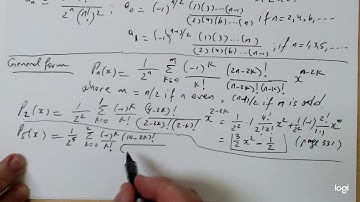 1/2^n (n!)^2
a_0 = (-1)^{n/2} (1)(3)...(n-1) / (2)(4)(6)...(n) if n=2,4,6,...
a_1 = (-1)^{(n-1)/2} (1)(3)...(n) / (2)(4)(6)...(n-1), if n=1,3,5,...
General form P_n(x) = 1/2^n Σ_{k=0}^{m} (-1)^k/k! (2n-2k)!/(n-2k)!(n-k)! x^{n-2k}
where m = n/2 if n even, (n-1)/2 if n is odd
P_2(x) = 1/2^2 Σ_{k=0}^{1} (-1)^k/k! (4-2k)!/(2-2k)!(2-k)! x^{2-2k} = 1/2^2 · 1 4!/2!2! x^2 + 1/2^2 (-1) 2!/1 x^0
= 3/2 x^2 - 1/2 (page 331)
P_5(x) = 1/2^5 Σ_{k=0}^{2} (-1)^k/k! (10-2k)!/(
logi